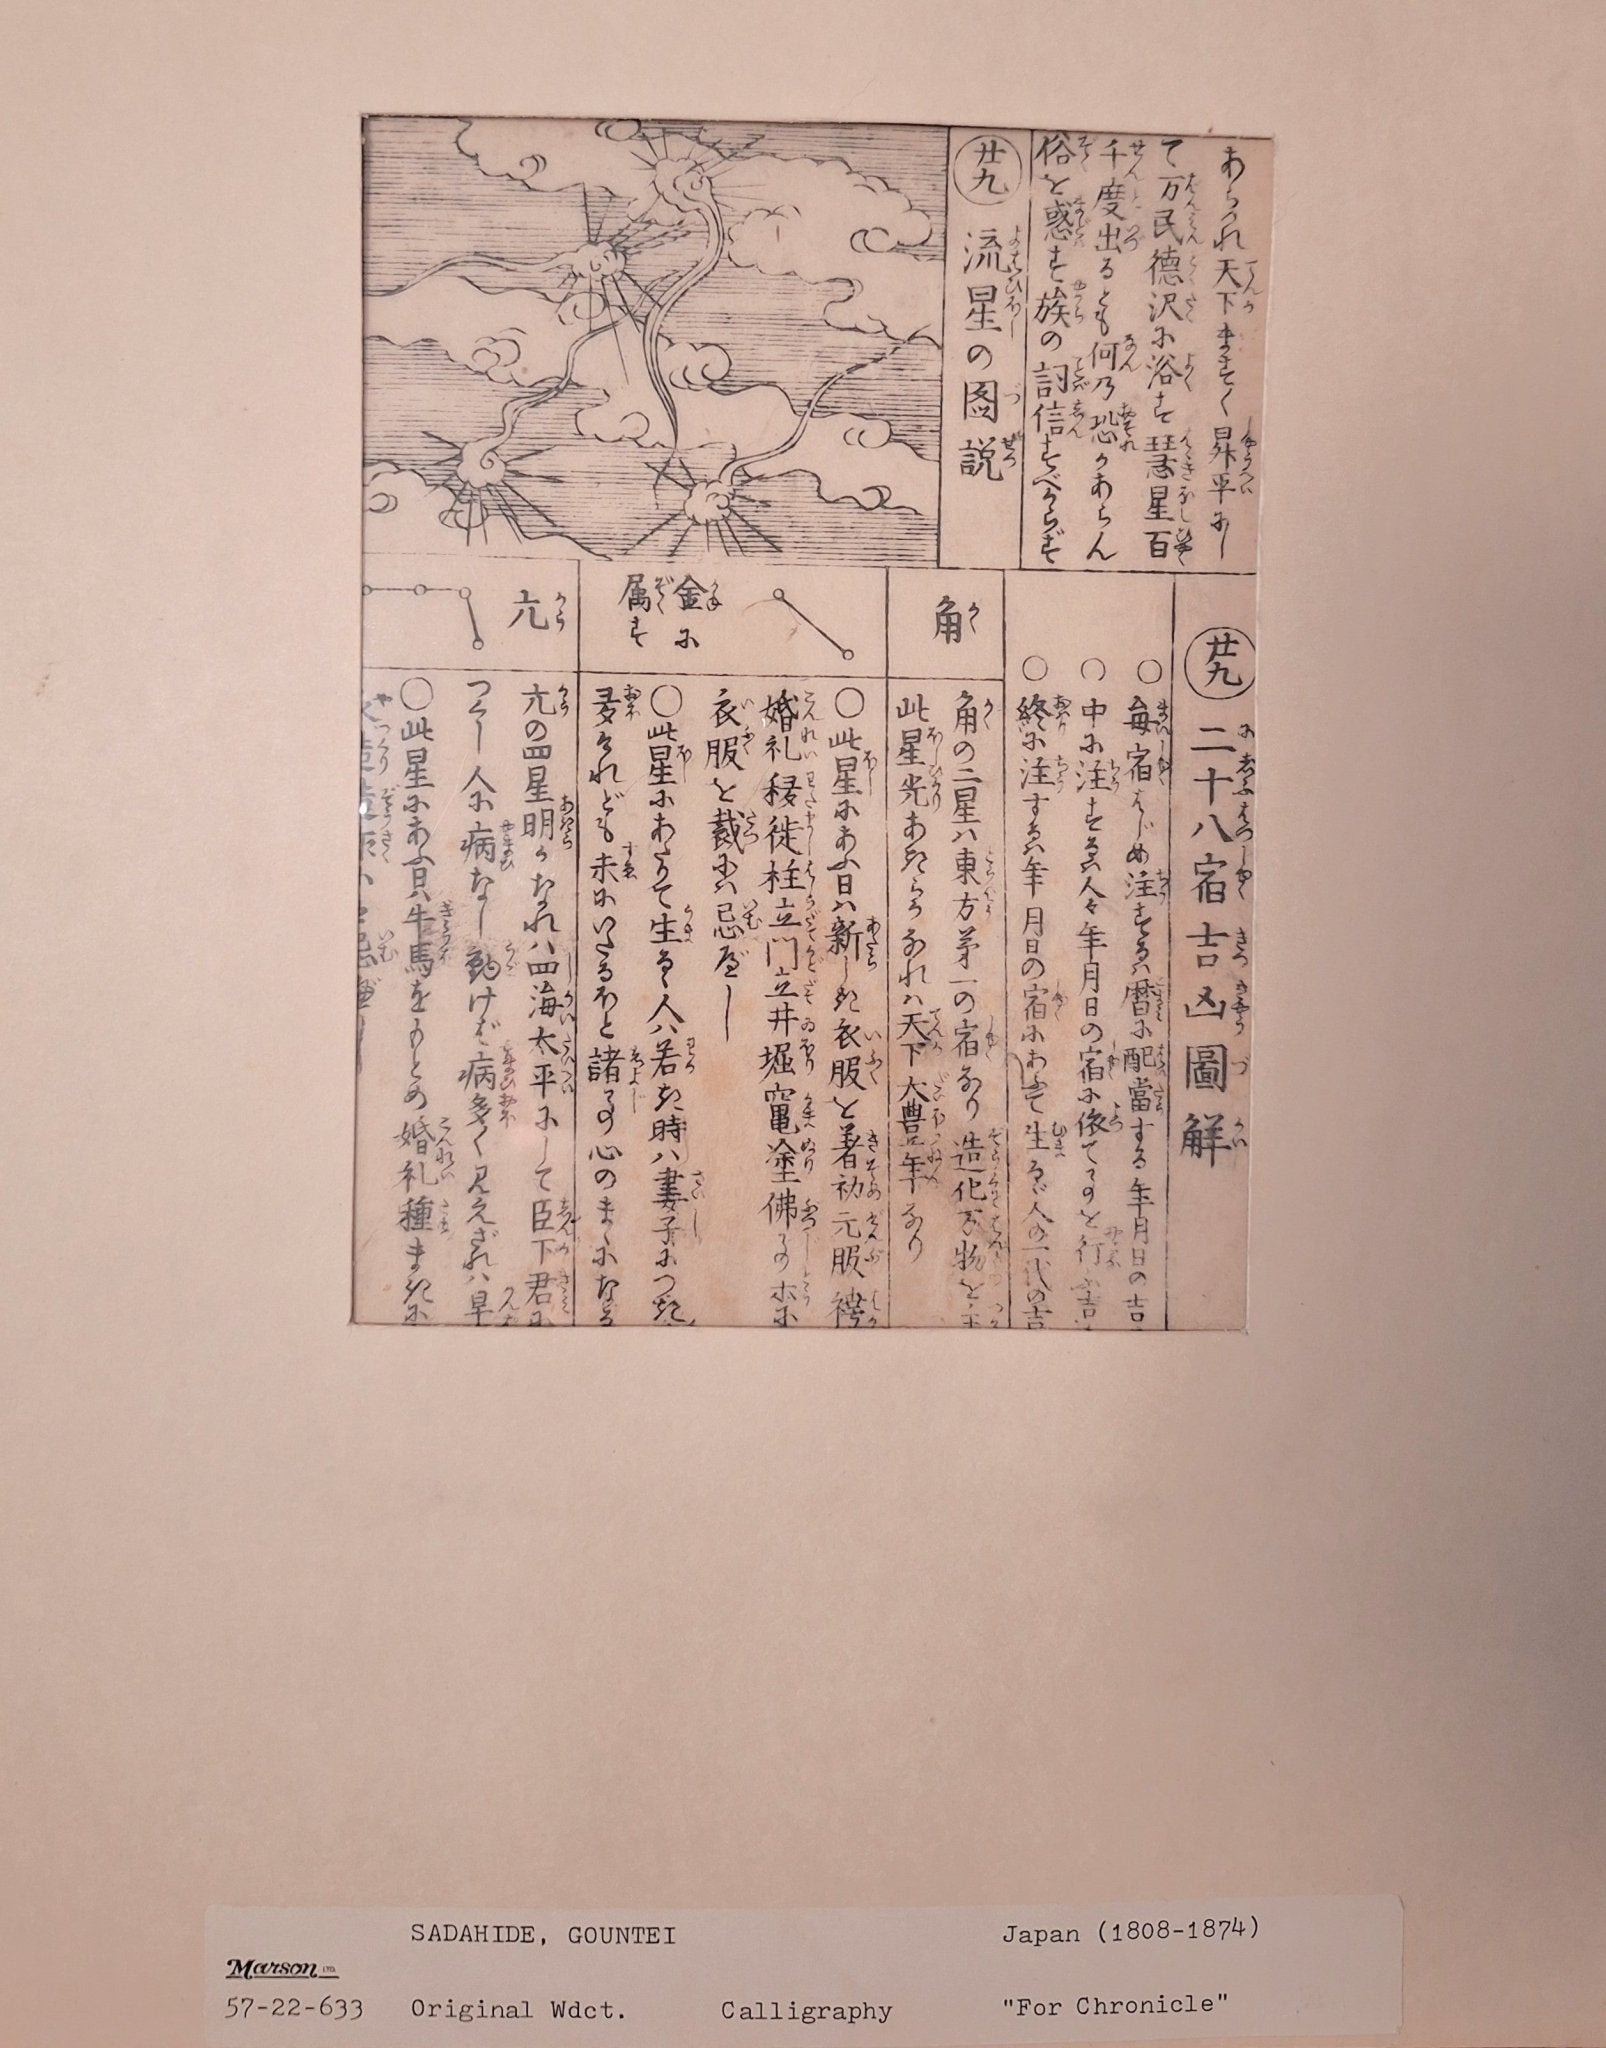 あらはれ天下まさに昇平にし
て万民徳沢に浴す彗星百
千度出るとも何の恐かあらん
俗を惑す族の詞信ずべからず
廿九 流星の図説
廿九 二十八宿吉凶圖解
○毎宿はじめ注するは暦に配當する年月日の吉
○中に注するは人々年月日の宿に依て事を行ふ吉
○終に注するは年月日の宿にあふて生るゝ人の一代の吉
角
角の二星は東方第一の宿なり造化万物を主
此星光あきらかなれば天下大豊年なり
金に
属す
○此星にあふ日は新しき衣服を着初元服袴
婚礼移徙柱立門立井堀竃塗佛事の
衣服を裁には忌べし
○此星にあたりて生るゝ人は若き時は妻子につき
多けれども末にいたるほど諸事心のまゝになる
亢
亢の四星明かなれば四海太平にして臣下君に
つくし人に病なし動けば病多く見えざれば旱
○此星にあふ日牛馬をもとめ婚礼種まきに
SADAHIDE, GOUNTEI Japan (1808-1874)
Marson LTD.
57-22-633 Original Wdct. Calligraphy "For Chronicle"